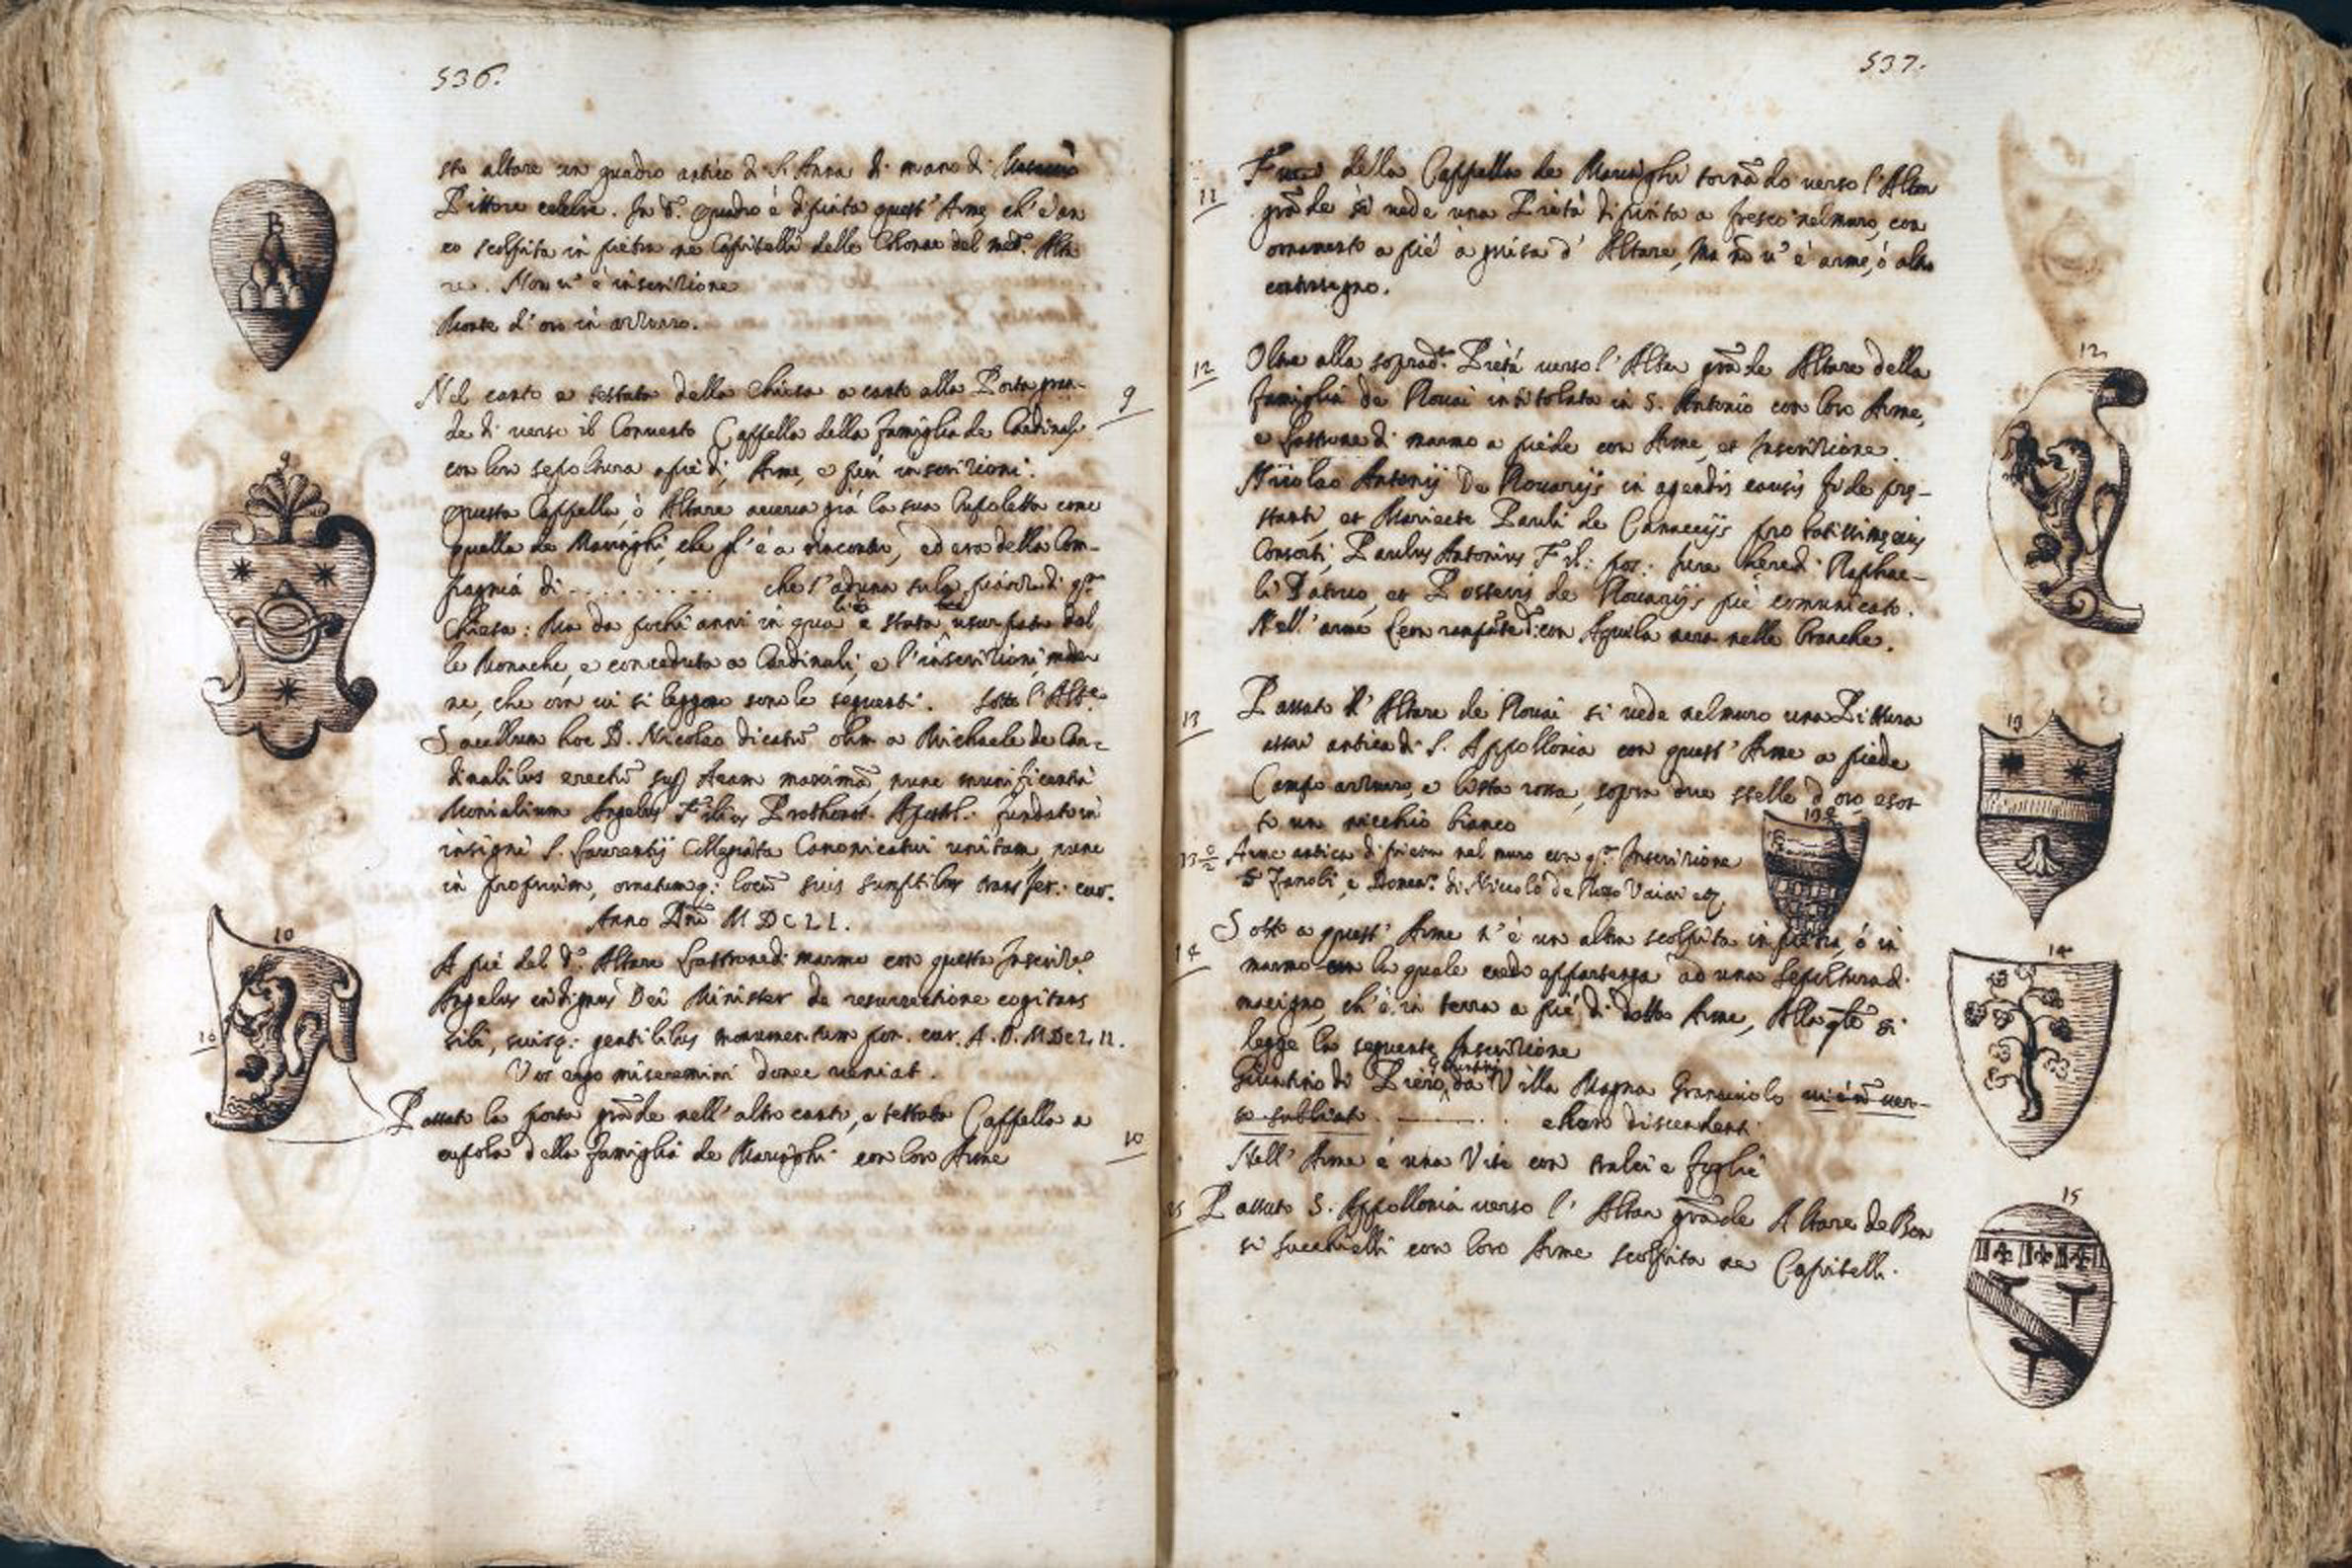 536.
sto altare un quadro antico di S. Anna di mano di Masaccio
Pittore celebre. In d.º quadro è dipinta quest' Arme, ch' è an
co scolpita in pietra ne Capitelli delle Colonne del med.º Alta
re. Non v' è inscrizione
Monte d' oro in azzurro.
Nel canto e testata della Chiesa a canto alla Porta gran-
de di verso il Convento Cappella della famiglia de Cardinali
con lor sepoltura a piedi, Arme, e più inscrizioni.
Questa Cappella, ò Altare aveva già la sua Cupoletta come
quella de Maringhi, che gl' è a rincontro, ed era della Com-
pagnia di . . . . . . . . . che s' aduna sula piazza di q.ta
Chiesa: Ma da pochi anni in qua è stata usurpata dal
le Monache, e conceduta a Cardinali, e l' inscrizioni moder
ne, che ora vi si leggono sono le seguenti. Sotto l' Alt.e
Sacellum hoc D. Nicolao dicatū olim a Michaele de Car-
dinalibus erectū sup Aram maximā, nunc munificentia
Monialium Angelus Filius Prothonot. Apostol. fundatori
insigni S. Laurentij Collegiata Canonicatui unitam, nunc
in proprium, ornatumq: locū suis sumptibus transfer: cur.
Anno Dnī MDCLI.
A piè del d.º Altare Lastrone di marmo con questa Inscriz.e
Angelus indignus Dei Minister de resurrectione cogitans
sibi, suisq: gentilibus monumentum pon. cur. A.D. MDCLII.
Vos ergo miseremini donec veniat.
Passato la porta grāde nell' altro canto, e testata Cappella a
cupola della famiglia de Maringhi con loro Arme
9
10
9
10
10
537.
11
Fuori della Cappella de Maringhi tornādo verso l' Altar
grāde si vede una Pietà dipinta a fresco nel muro, con
ornamento a piè à guisa d' Altare, Ma nō v' è arme, ò altro
contrasegno.
12
Oltre alla soprad.ta Pietà verso l' Altar grāde Altare della
famiglia de Novai intitolata in S. Antonio con loro Arme,
e Lastrone di marmo a piede con Arme, et Inscrizione.
Niccolao Antonij De Novarijs in agendis causis fide pre-
stanti, et Mariette Pauli de Cannaccijs pro batissime eius
Consorti, Paulus Antonius Fil: pos: heredi Raphae-
li Patruo, et Posteris de Novarijs pie comunicato.
Nell' arme Leon rampāte d: con Aquila nera nelle branche.
13
Passato l' Altare de Novai si vede nel muro una Pittura
assai antica di S. Appollonia con quest' Arme a piede
Campo azzurro, e lista rossa, sopra due stelle d' oro e sot
to un nicchio bianco
13
Arme antica di pietra nel muro con q.ta Inscrizione
S Zanobi, e Domen.º di Niccolò de Vaiai etc.
14
Sotto a quest' Arme n' è un altra scolpita in pietra, ò in
marmo la quale credo appartenga ad una Sepoltura di
macigno, ch' è in terra a piè di detta Arme, Alla qle si
legge la seguente Inscrizione
Giuntino di Piero da Villa Magna
. ——— . .
Nell' Arme è una Vite con tralci e foglie
15
Passato S. Appollonia verso l' Altar grāde Altare de Bon
si Succhielli con loro Arme scolpita ne Capitelli.
12
13
14
15